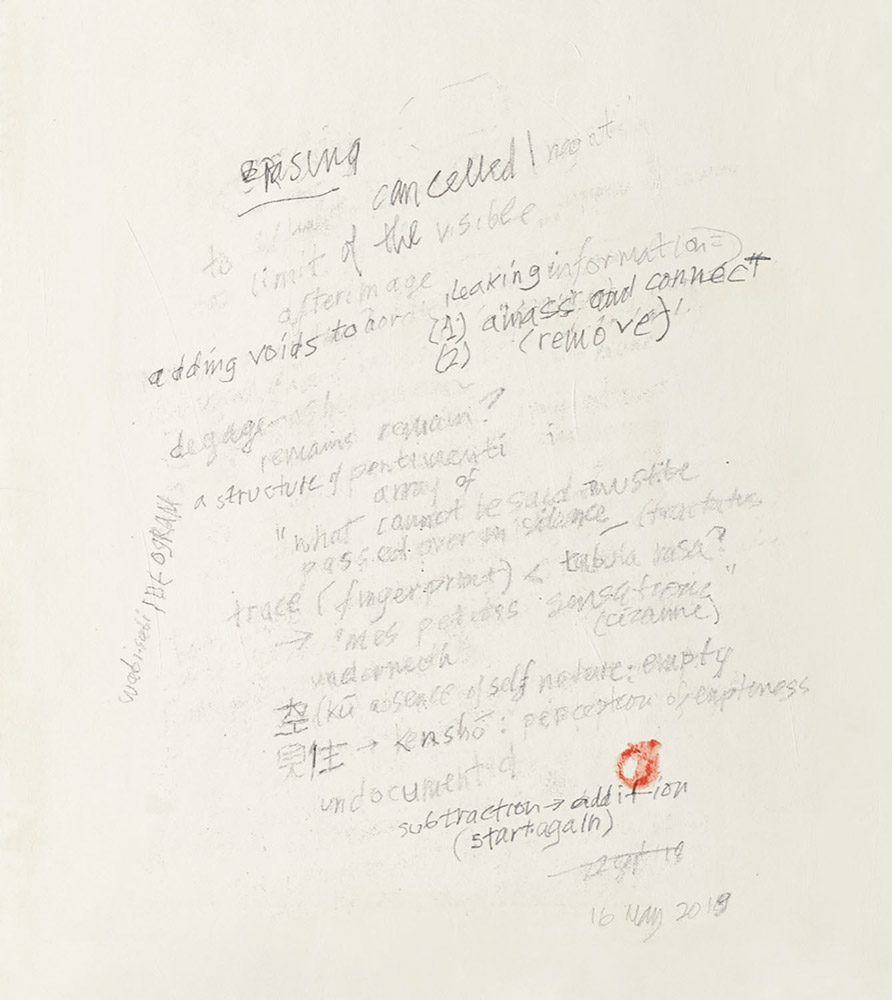 erasing
cancelled /
to
limit of the visible
afterimage
leaking information =
adding voids to
(1) amass and connect
(2) (remove)
degage
remains remain?
a structure of pentimenti
array of
"what cannot be said must be
passed over in silence (tractatus
trace (fingerprint) < tabula rasa?
→ "mes petites sensations"
(cézanne)
underneath
空 (kū absence of self nature: empty
見性 → kenshō: perception of emptiness
undocumented
subtraction → addition
(start again)
16 May 2019
wabi-sabi IDEOGRAM